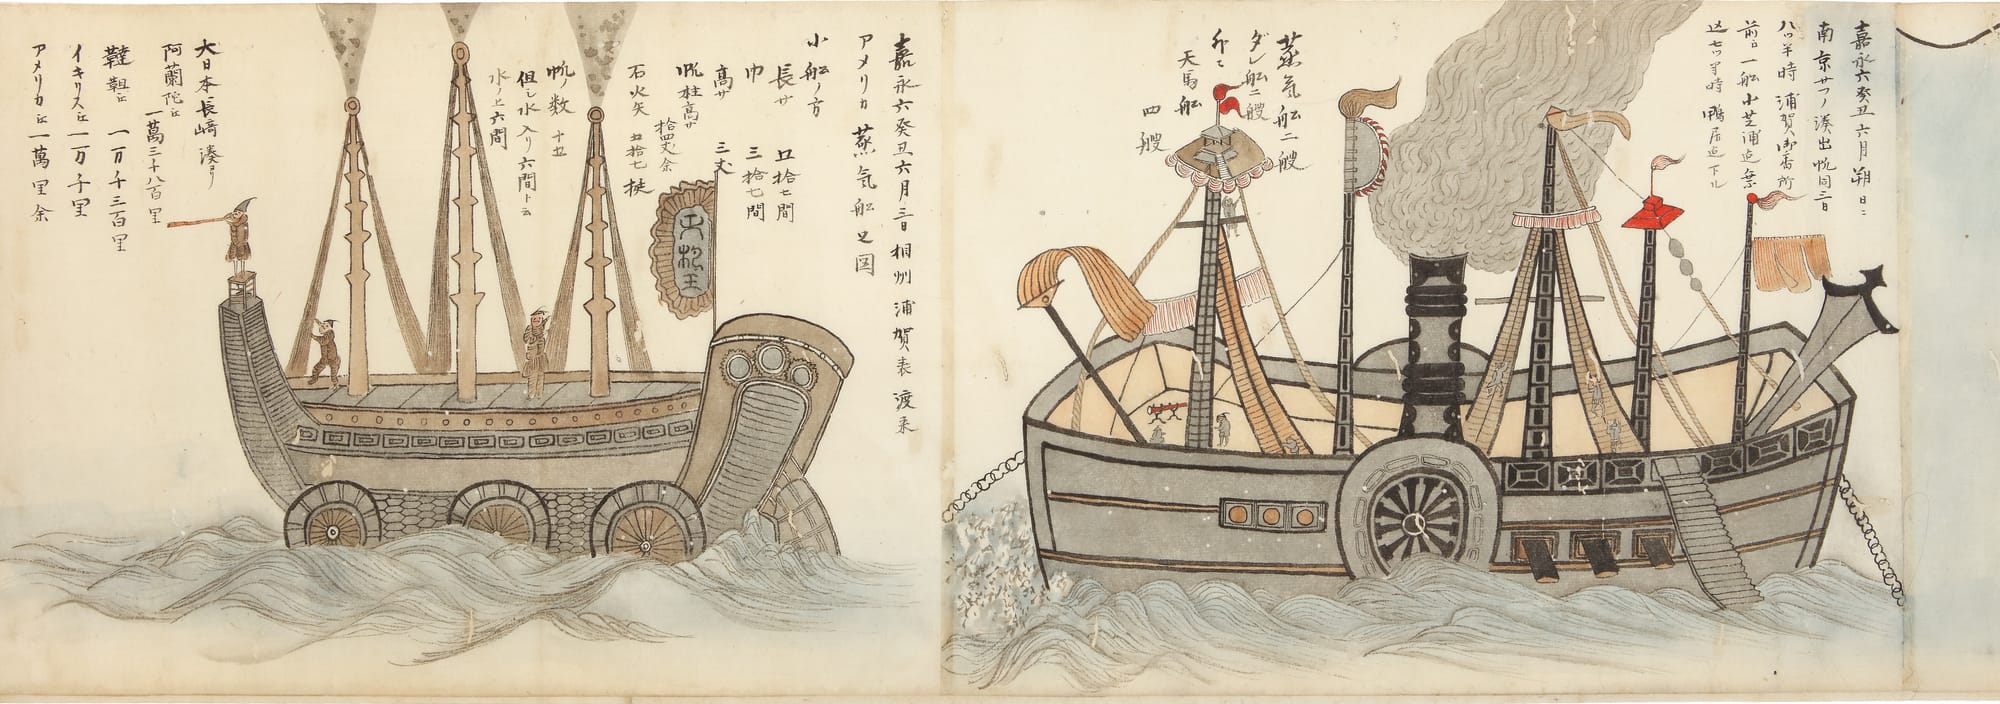 嘉永六癸丑六月朔日ニ
南京サツノ湊出帆同三日
八ツ半時浦賀御番所
前ゟ一船小芝浦迄乗
込七ツ半時鴨居迄下ル
蒸気船二艘
ダレ船二艘
外ニ
天馬船
四艘
嘉永六癸丑六月三日相州浦賀表渡来
アメリカ蒸気船之図
小船ノ方
長サ 口拾七間
巾 三拾七間
高サ 三丈
帆柱高サ
拾四丈余
石火矢 五拾七挺
帆数 十五
但シ水入リ六間ト云
水ノ上六間
大日本長﨑湊ヨリ
阿蘭陀江
一萬三千八百里
韃靼江 一万千三百里
イキリス江一万千里
アメリカ江一萬里余